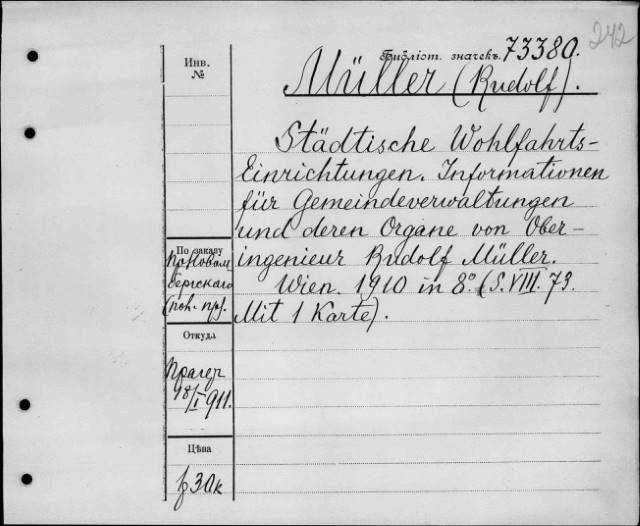 242
Библіот. значекъ. 73380.
Müller (Rudolf).
Städtische Wohlfahrts-
Einrichtungen. Informationen
für Gemeindeverwaltungen
und deren Organe von Ober-
ingenieur Rudolf Müller.
Wien. 1910 in 8º. (S. VIII. 73.
Mit 1 Karte).
Инв.
№
По заказу
бергскаго
Откуда
Прагер
18/I 911.
Цѣна